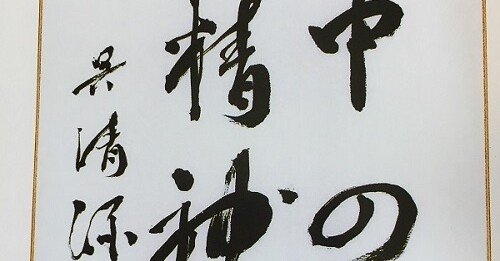 中の
精神
呉清源